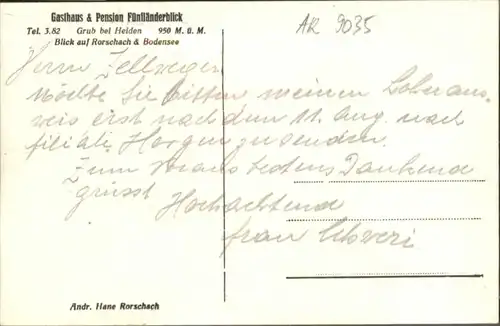 Gasthaus & Pension Fünfländerblick
Tel. 3.82 Grub bei Heiden 950 M. ü. M.
Blick auf Rorschach & Bodensee
AR 9035
Herrn Zellweger
Möchte Sie bitten meinen Lohnaus-
weis erst nach dem 11. Aug. nach
filiale Horgen zu senden.
Zum Voraus bestens Dankend
grüsst Hochachtend
frau
Andr. Hane Rorschach